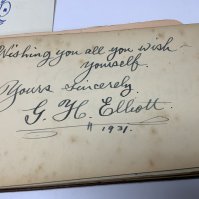 Wishing you all you wish
yourself.
Yours sincerely.
G. H. Elliott.
1931.